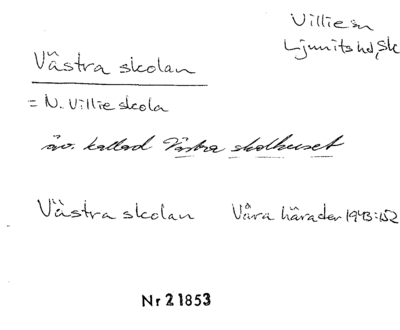 Villie sn
Ljunits hd, Sk
Västra skolan
= N. Villie skola
äv. kallad Västra skolhuset
Västra skolan Våra härader 1943:152
Nr 21853